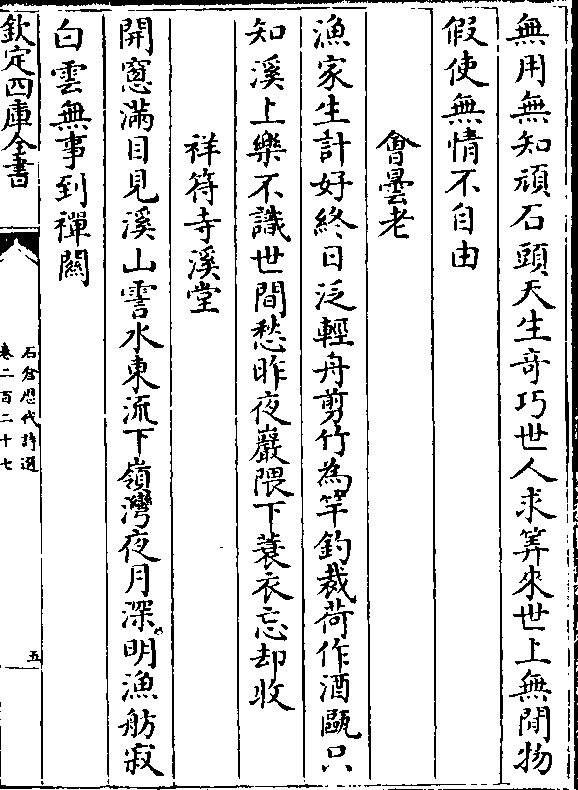 無用無知頑石頭天生奇巧世人求筭來世上無閒物
假使無情不自由
會曇老
漁家生計好終日泛輕舟剪竹為竿釣裁荷作酒甌只
知溪上樂不識世間愁昨夜巖隈下蓑衣忘却收
祥符寺溪堂
開窻滿目見溪山霅水東流下嶺灣夜月深明漁舫寂
白雲無事到禪關
欽定四庫全書
石倉歷代詩選
卷二百二十七
五